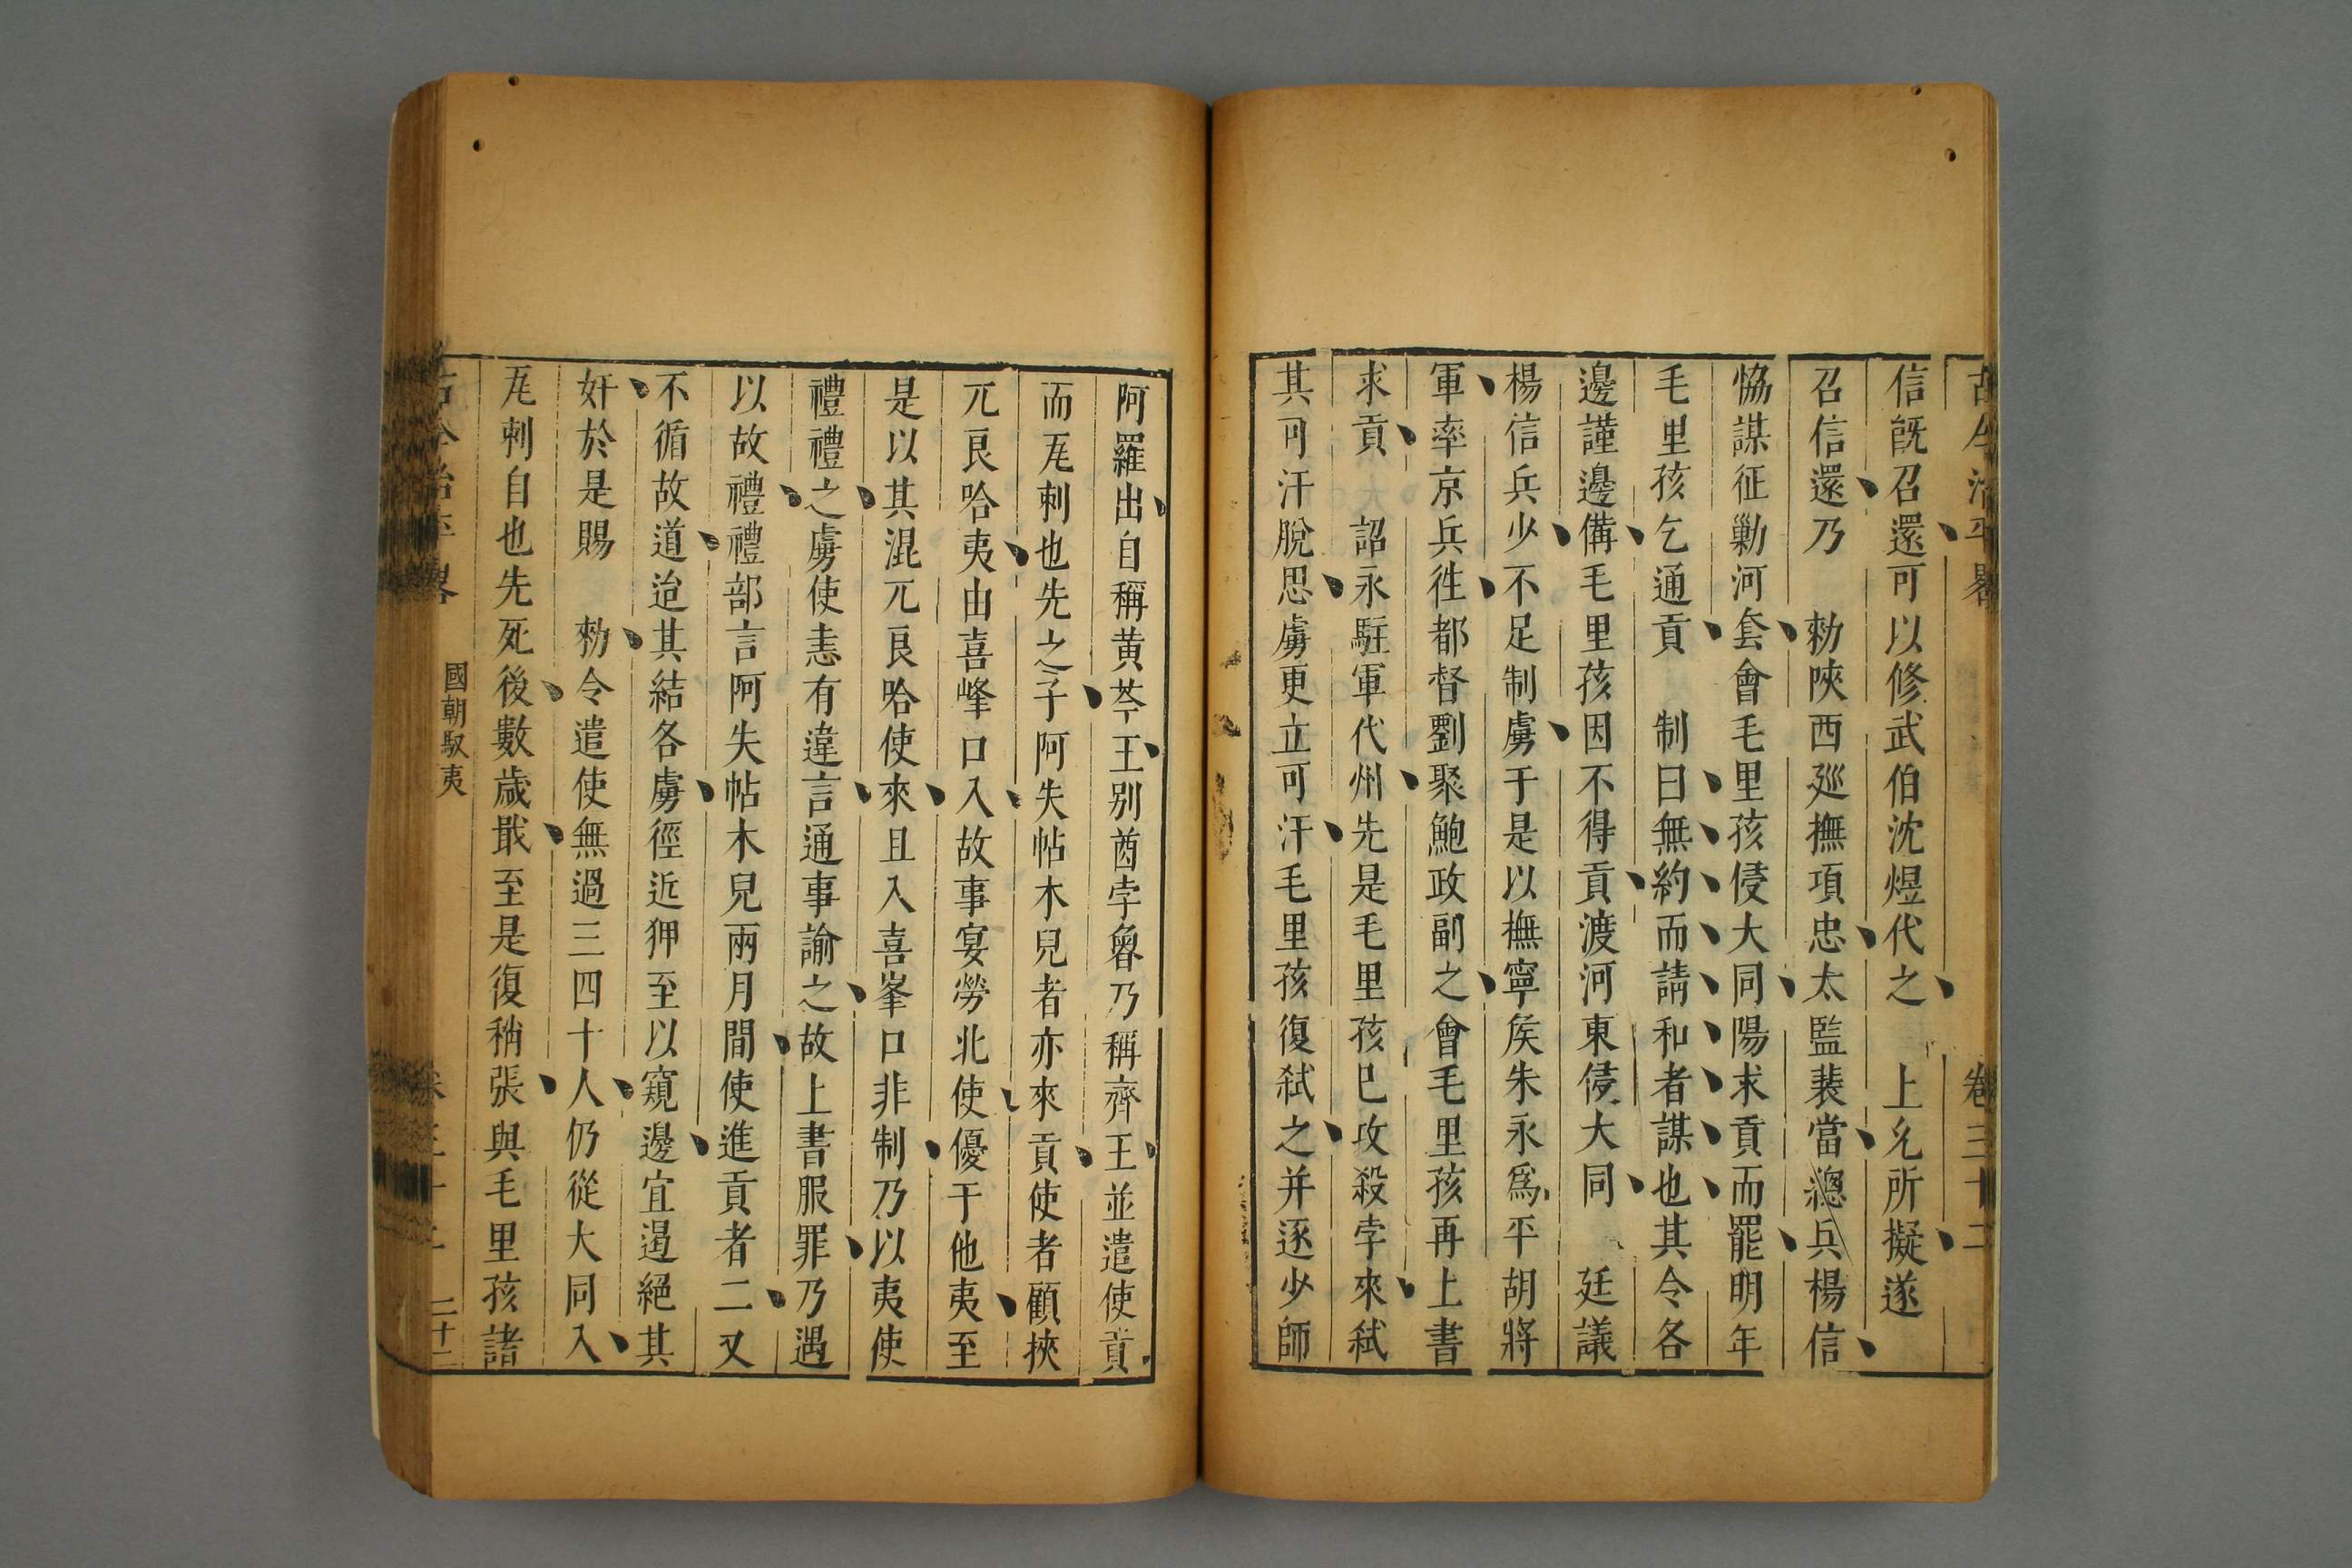 古今治平畧 卷三十二
信旣召還可以修武伯沈煜代之 上允所擬遂
召信還乃 勑陝西廵撫項忠太監裴當總兵楊信
恊謀征勦河套會毛里孩侵大同陽求貢而罷明年
毛里孩乞通貢 制曰無約而請和者謀也其令各
邊謹邊備毛里孩因不得貢渡河東侵大同 廷議
楊信兵少不足制虜于是以撫寧侯朱永爲平胡將
軍率京兵徃都督劉聚鮑政副之會毛里孩再上書
求貢 詔永駐軍代州先是毛里孩已攻殺孛來弑
其可汗脫思虜更立可汗毛里孩復弑之并逐少師
阿羅出自稱黄苓王别酋孛魯乃稱齊王並遣使貢
而瓦剌也先之子阿失帖木兒者亦來貢使者顧挾
兀良哈夷由喜峰口入故事宴勞北使優于他夷至
是以其混兀良哈使來且入喜峯口非制乃以夷使
禮禮之虜使恚有違言通事諭之故上書服罪乃遇
以故禮禮部言阿失帖木兒兩月間使進貢者二又
不循故道迨其結各虜徑近狎至以窺邊宜遏絕其
奸於是賜 勑令遣使無過三四十人仍從大同入
瓦剌自也先死後數歲戢至是復稍張與毛里孩諸
古今治平畧 國朝馭夷 卷三十二 二十二